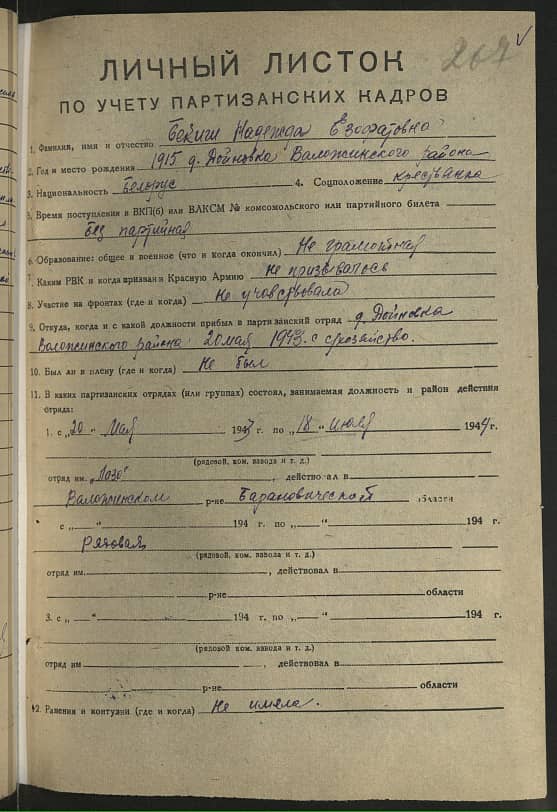 267 V
ЛИЧНЫЙ ЛИСТОК
ПО УЧЕТУ ПАРТИЗАНСКИХ КАДРОВ
1. Фамилия, имя и отчество Бекиш Надежда Езофатовна
2. Год и место рождения 1915 д. Дойновка Валожинского района
3. Национальность белорус 4. Соцположение крестьянка
5. Время поступления в ВКП(б) или ВЛКСМ № комсомольского или партийного билета
Без партийная
6. Образование: общее и военное (что и когда окончил) Не грамотная
7. Каким РВК и когда призван в Красную Армию Не призывалось
8. Участие на фронтах (где и когда) Не учавствовала
9. Откуда, когда и с какой должности прибыл в партизанский отряд д. Дойновка
Валожинского района 20 мая 1943 с
10. Был ли в плену (где и когда) Не был
11. В каких партизанских отрядах (или группах) состоял, занимаемая должность и район действия
отряда:
1. с „20" Мая 1943 г. по „18" июля 1944 г.
(рядовой, ком. взвода и т. д.)
отряд им. „Лазо" , действовал в
Валожинском р-не Барановической области
с „ " 194 г. по „ " 194 г.
Рядовая
(рядовой, ком. взвода и т. д.)
отряд им. , действовал в
р-не области
3. с „ " 194 г. по „ " 194 г.
(рядовой, ком. взвода и т. д.)
отряд им. , действовал в
р-не области
12. Ранения и контузии (где и когда) Не имела.